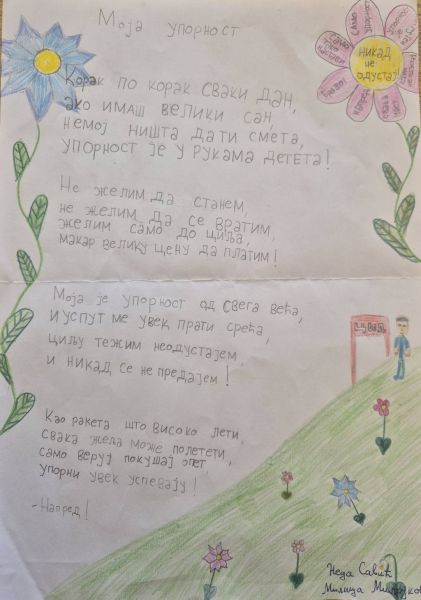 Моја упорност
НИКАД
НЕ
ОДУСТАЈ!
Корак по корак сваки дан,
ако имаш велики сан,
немој ништа дати смета,
упорност је у рукама детета!
Не желим да станем,
не желим да се вратим,
желим само до циља,
макар велику цену да платим!
Моја је упорност од свега већа,
и успут ме увек прати срећа,
циљу тежим неодустајем
и никад се не предајем!
Као ракета што високо лети,
свака жеља може полетети,
само веруј покушај опет,
упорни увек успевају!
-Напред!
Неда Савић
Милица